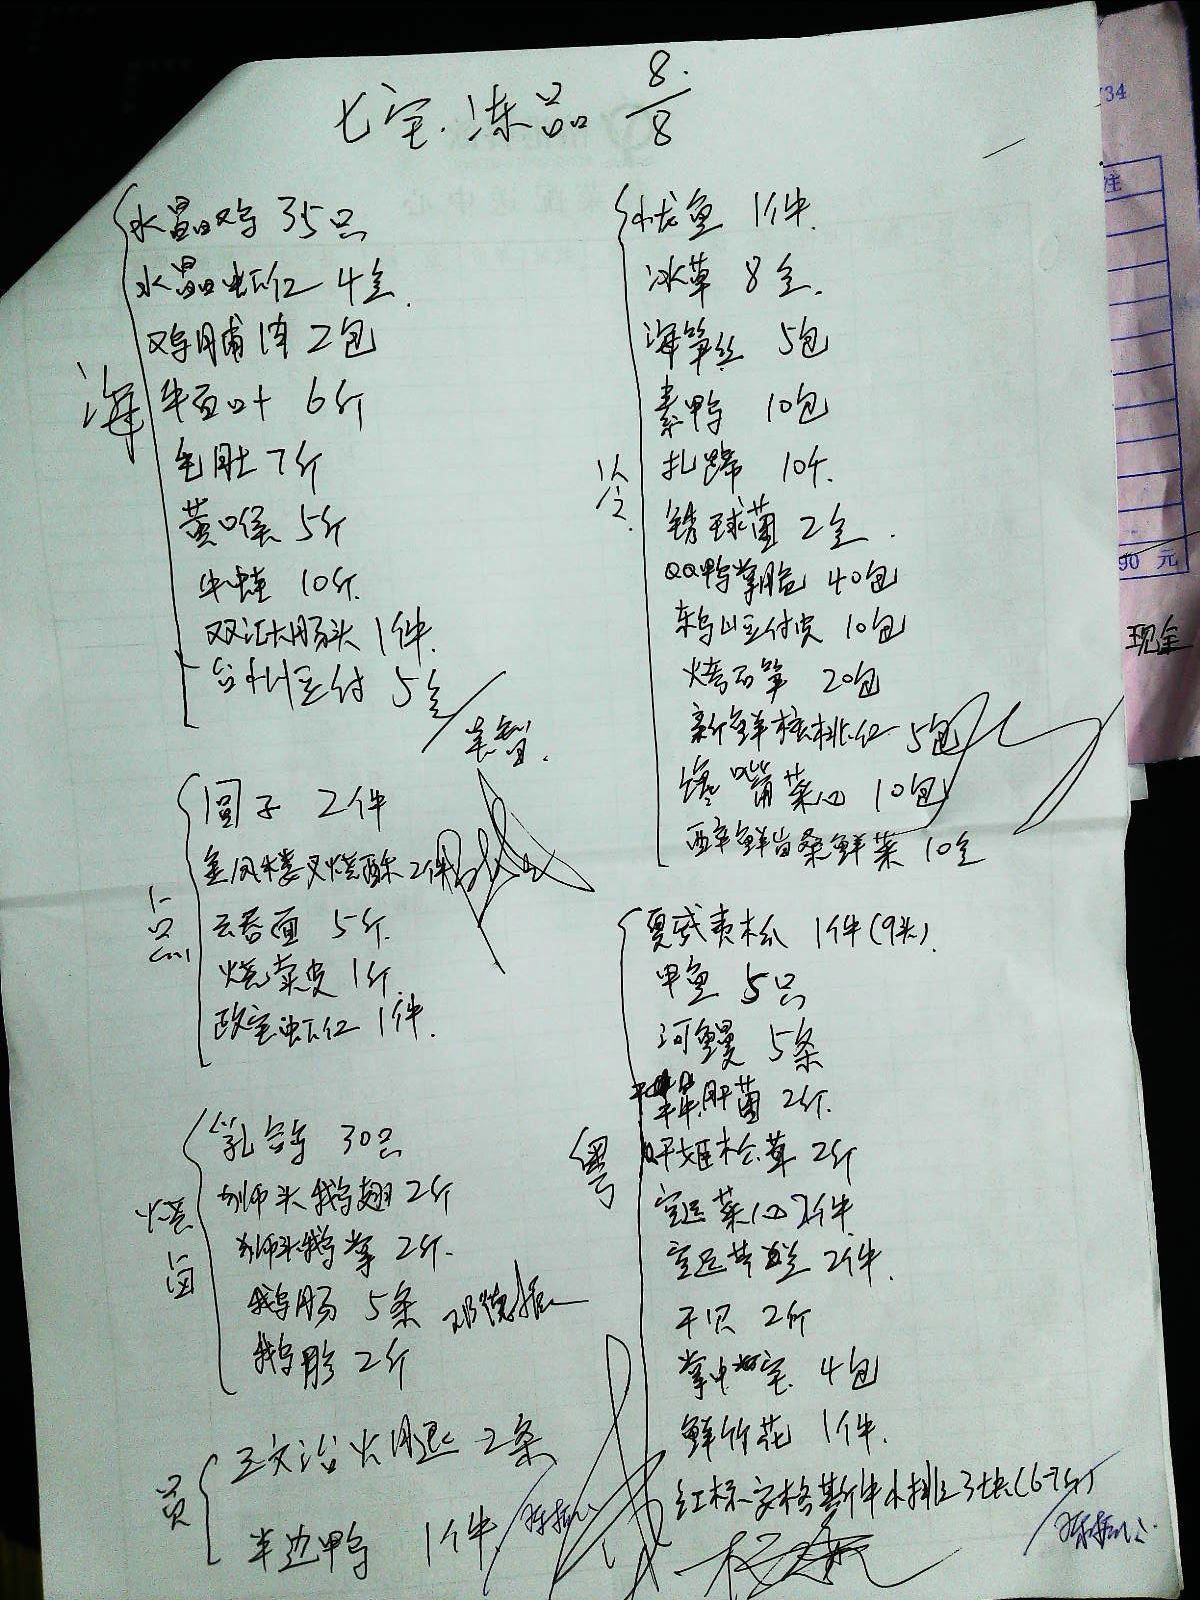 七宝.冻品 8/8
海
水晶鸡 35只
水晶虾仁 4盒.
鸡脯肉 2包
牛百叶 6斤
毛肚 7斤
黄喉 5斤
牛蛙 10斤.
双汇大肠头 1件.
台州豆付 5盒
点
圆子 2件
金凤楼叉烧酥 2件
云吞面 5斤.
烧卖皮 1斤
政宝虾仁 1件.
烧卤
乳鸽 30只
狮头鹅翅 2斤
狮头鹅掌 2斤.
鹅肠 5条
鹅胗 2斤
员
三文治火腿 2条
半边鸭 1件
冷.
龙鱼 1件.
冰草 8盒.
海笋丝 5包
素鸭 10包
扎蹄 10个.
绣球菌 2盒.
QQ鸭掌脆 40包
东乌山豆付皮 10包
烤石笋 20包
新鲜核桃仁 5包
馋嘴菜心 10包
粤
夏威夷木瓜 1件(9头).
甲鱼 5只
河鳗 5条
牛肝菌 2斤.
姬松茸 2斤
宁夏菜心 2件
2件.
干贝 2斤
掌中宝. 4包
鲜竹花 1件.
红标安格斯牛小排 3块(6-7斤)
注
90 元
现金